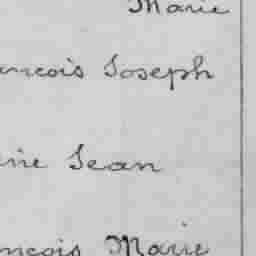 Marie
ancois Joseph
rie Jean
ancois Marie